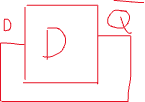 D D Q̅